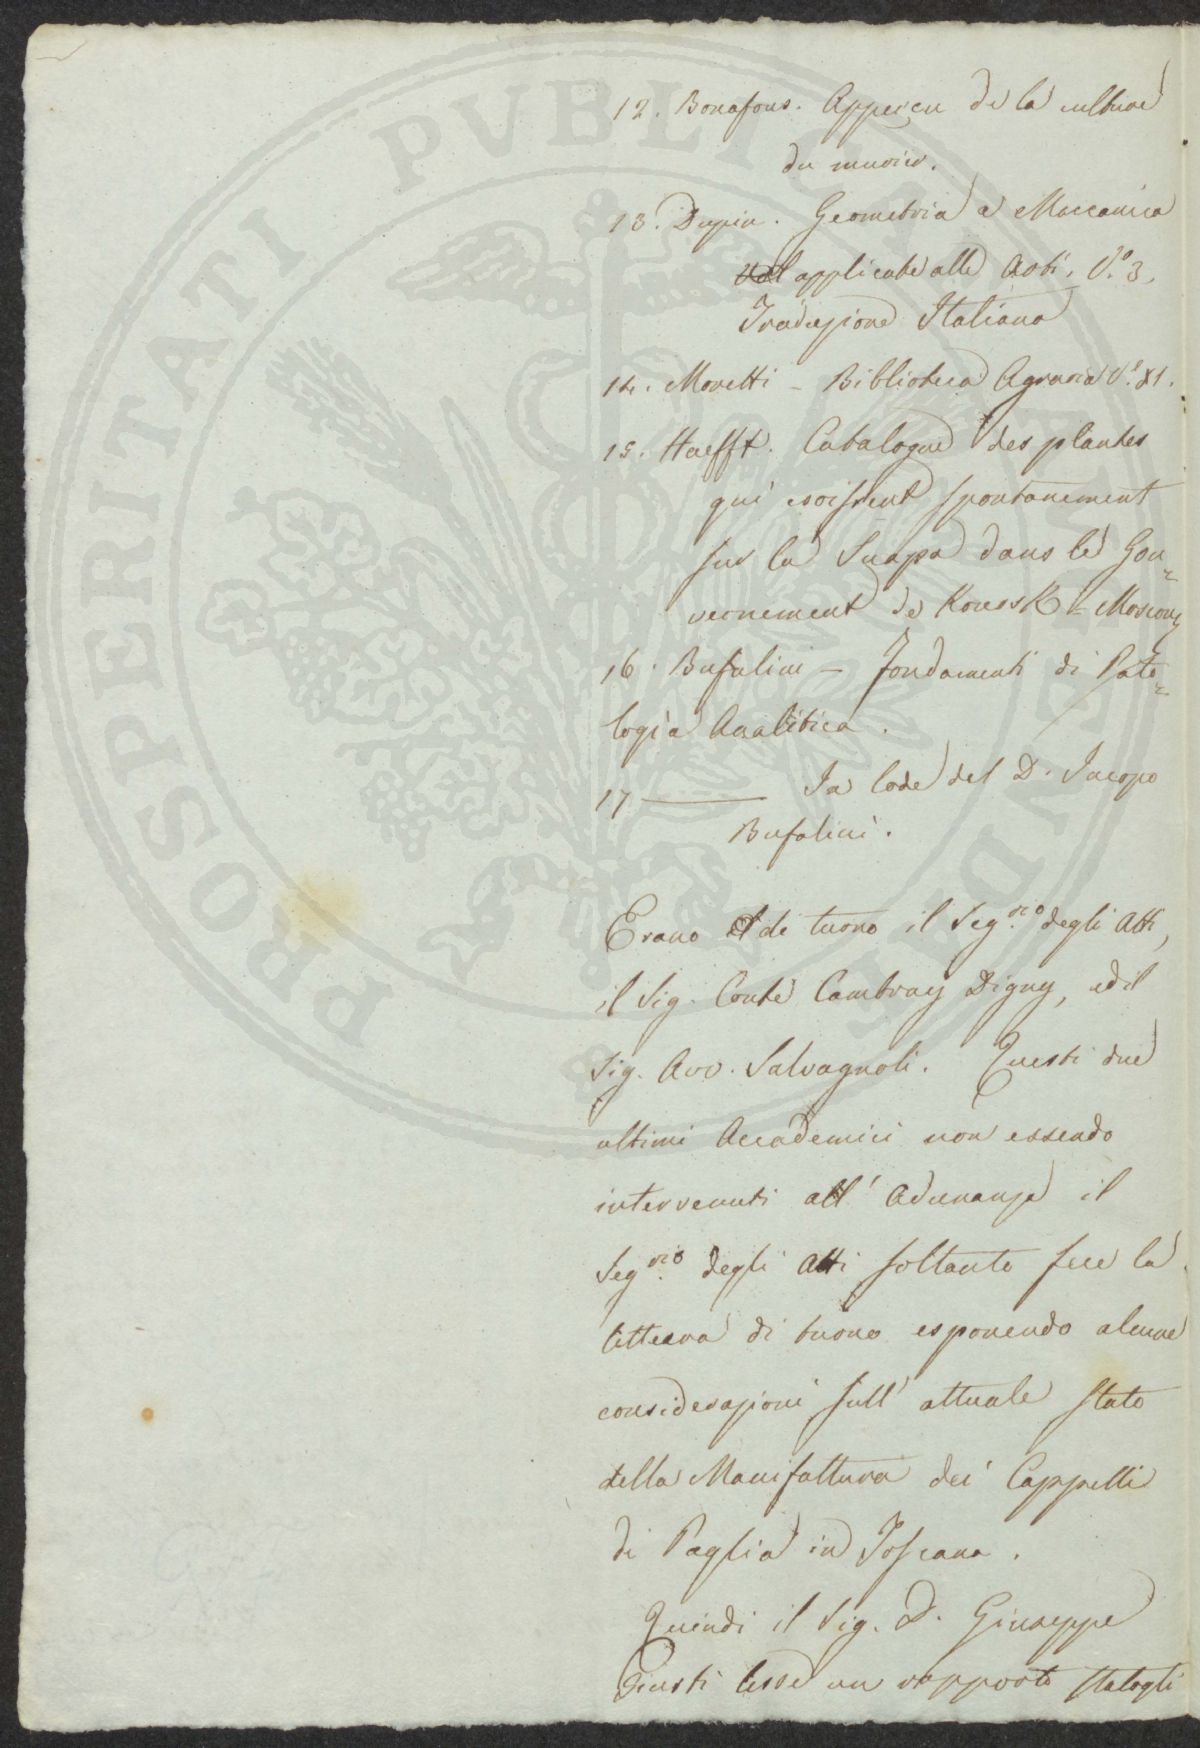 12. Bonafous. Apperçu de la culture
du murier.
13. Dupin. Geometria e Meccanica
applicate alle Arti. V.º 3.
Traduzione Italiana
14. Moretti – Biblioteca Agraria V.º
15. Haefft. Catalogue des plantes
qui croissent spontanement
sur la Suapa dans le Gou=
vernement de Koursk – Moscou
16. Bufalini – Fondamenti di Pato=
logia Analitica.
17 ——— In lode del D. Jacopo
Bufalini.
Erano di turno il Seg.rio degli Atti,
il Sig. Conte Cambray Digny, ed il
Sig. Avv. Salvagnoli. Questi due
ultimi Accademici non essendo
intervenuti all' Adunanza il
Seg.rio degli Atti soltanto fece la
lettura di turno esponendo alcune
considerazioni sull' attuale stato
della Manifattura dei Cappelli
di Paglia in Toscana.
Quindi il Sig. D. Giuseppe
Giusti lesse un rapporto statogli
PROSPERITATI PUBLICAE